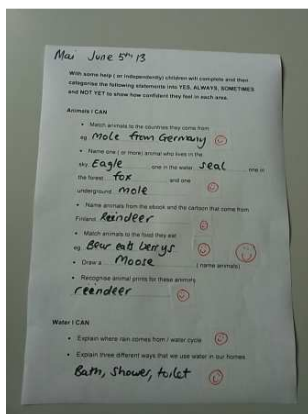 Mai June 5th 13
With some help ( or independently) children will complete and then
categorise the following statements into YES, ALWAYS, SOMETIMES
and NOT YET to show how confident they feel in each area.
Animals I CAN
• Match animals to the countries they come from
eg. Mole from Germany
• Name one ( or more) animal who lives in the
sky Eagle one in the water seal one in
the forest fox and one
underground mole
• Name animals from the ebook and the cartoon that come from
Finland Reindeer
• Match animals to the food they eat
eg. Bear eats berrys
• Draw a Moose ( name animals)
• Recognise animal prints for these animals
reindeer
Water I CAN
• Explain where rain comes from / water cycle
• Explain three different ways that we use water in our homes
Bath, shower, toilet